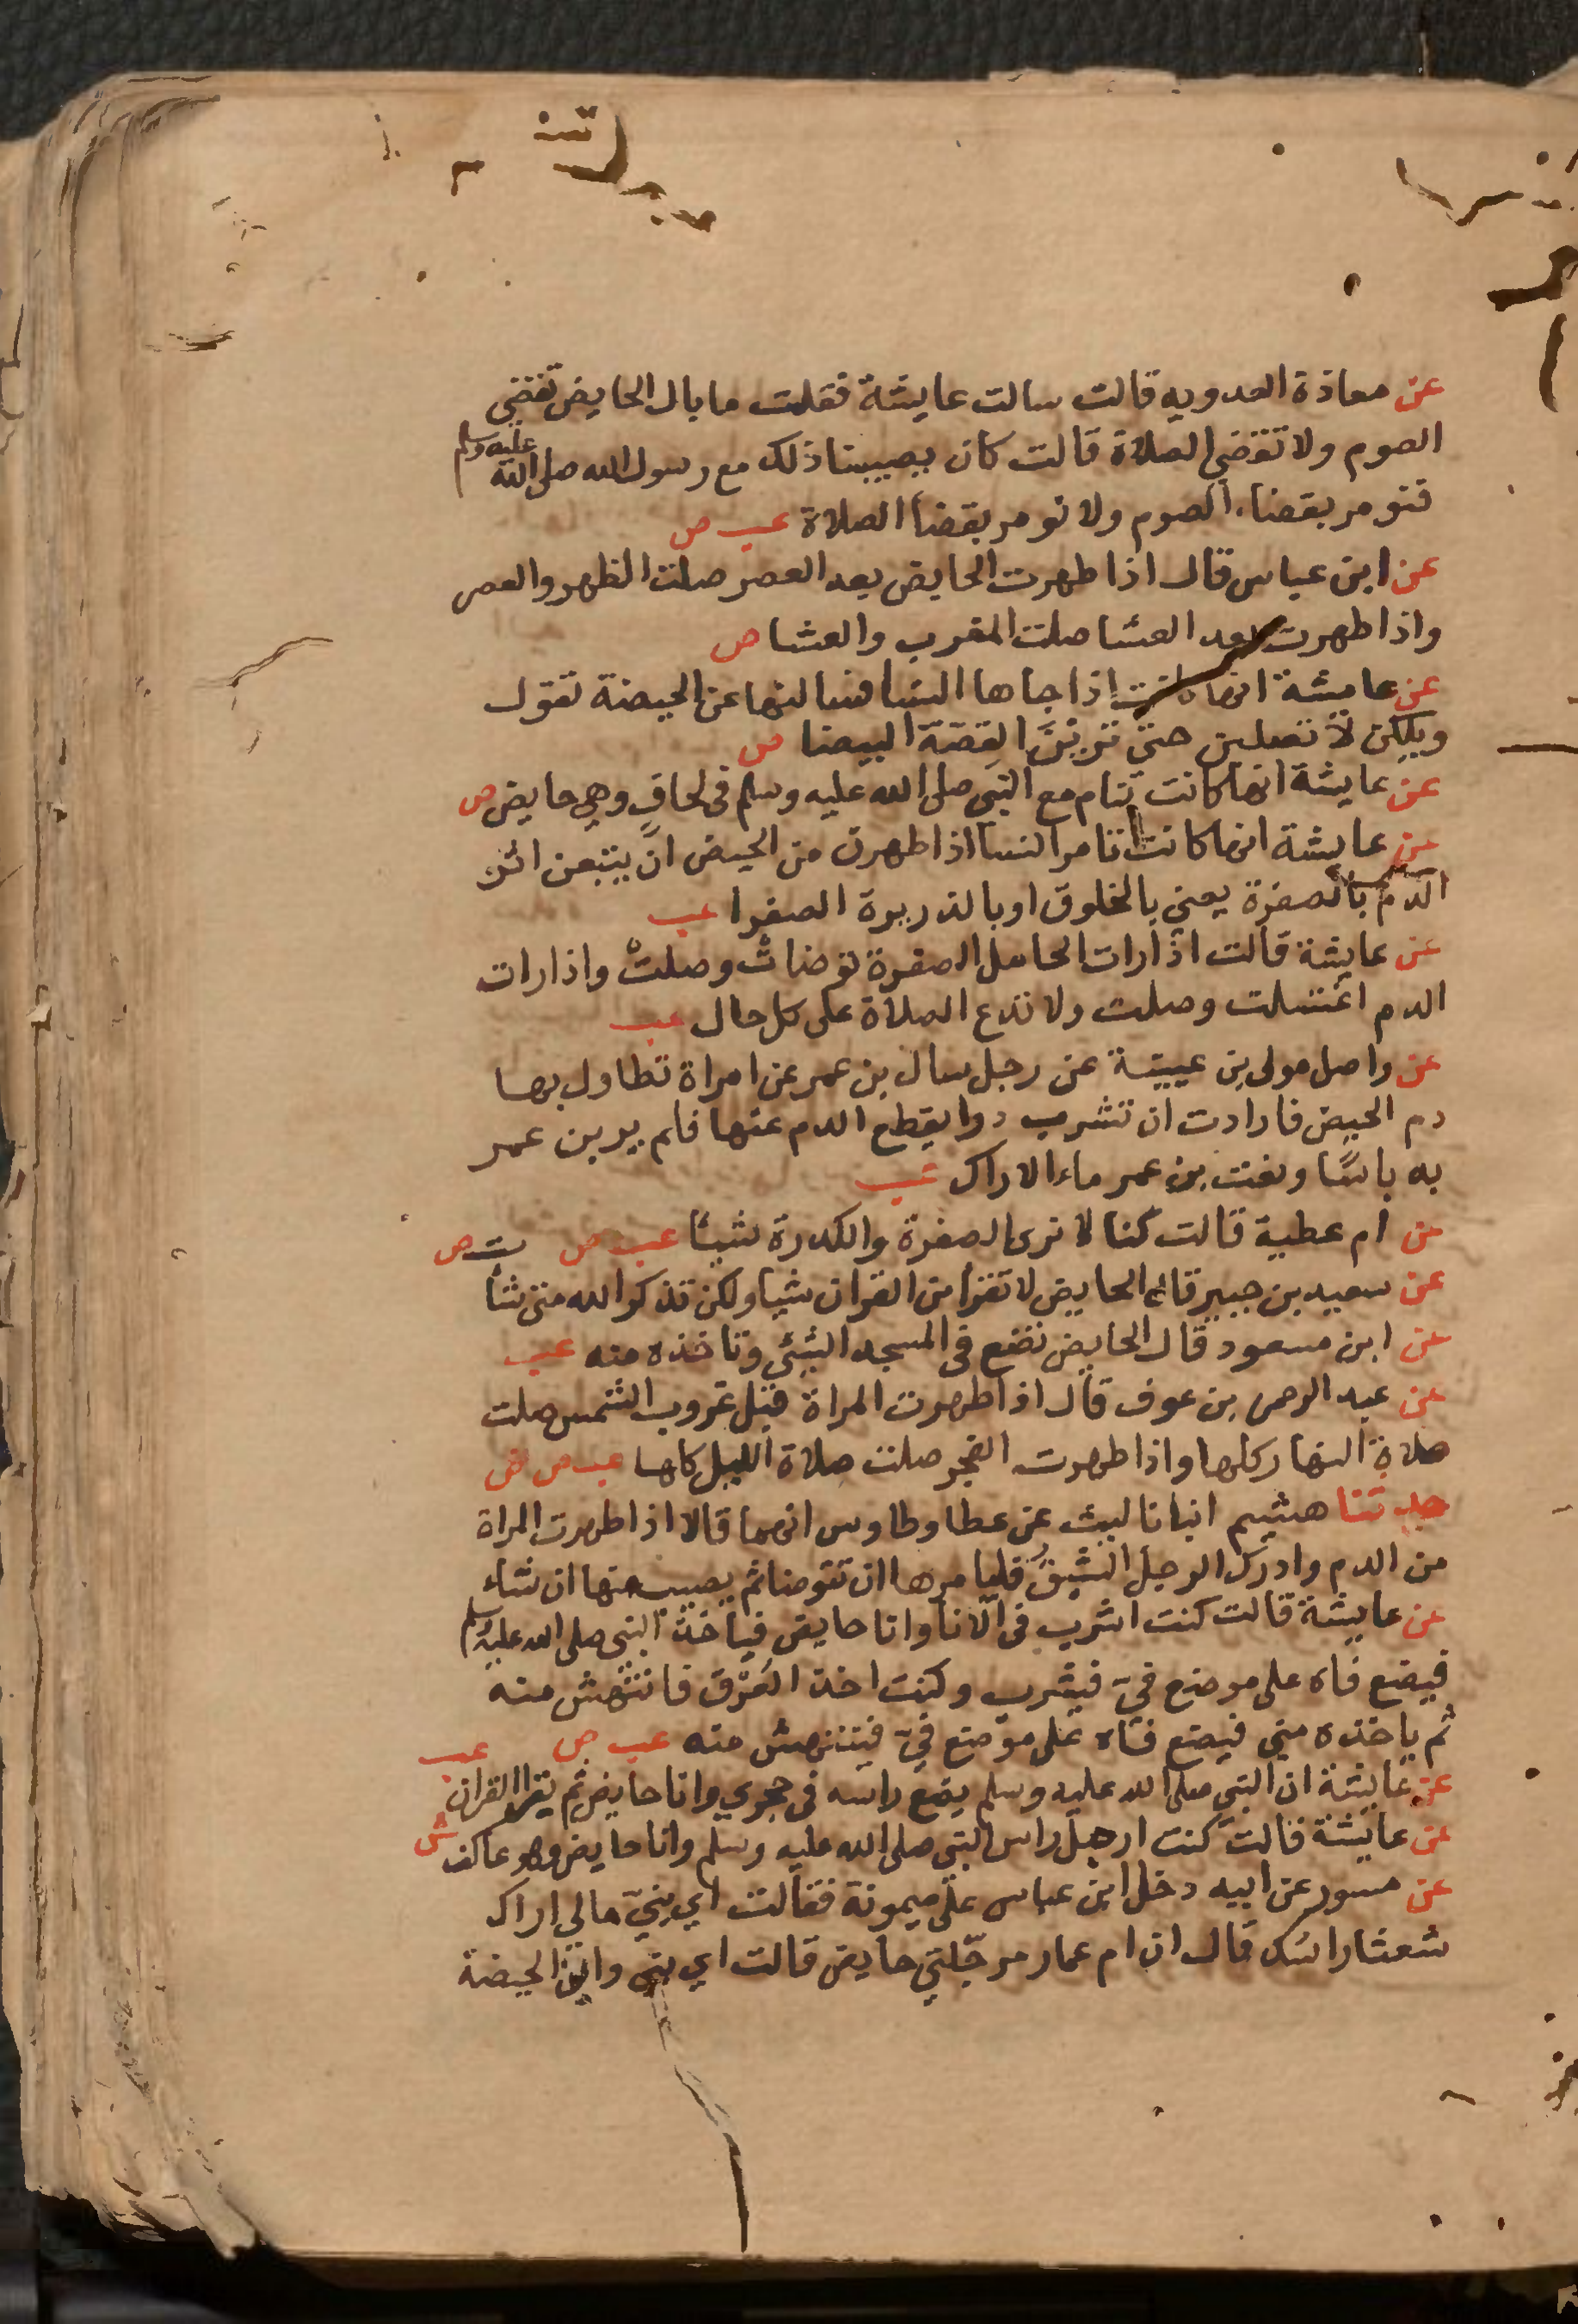 عن معاذة العدويه قالت سالت عايشة فقلت ما بال الحايض تقضي
الصوم ولا تقضي الصلاة قالت كان يصيبنا ذلك مع رسول الله صلى الله عليه وسلم
فنومر بقضاء الصوم ولا نومر بقضا الصلاة عب ص
عن ابن عباس قال اذا طهرت الحايض بعد العصر صلت الظهر والعصر
واذا طهرت بعد العشا صلت المغرب والعشا ص
عن عايشة انها كانت اذا جاها النسا فسالنها عن الحيضة تقول
ويلكن لا تصلين حتي ترين القصة البيضا ص
عن عايشة انها كانت تنام مع النبي صلى الله عليه وسلم في لحاف وهي حايض ص
عن عايشة انها كانت تامر النسا اذا طهرن من الحيض ان يتبعن اثر
الدم بالصفرة يعني بالخلوق او بالذريرة الصفرا عب
عن عايشة قالت اذا رات الحامل الصفرة توضات وصلت واذا رات
الدم اغتسلت وصلت ولا تدع الصلاة على كل حال عب
عن واصل مولى بن عيينة عن رجل سال بن عمر عن امراة تطاول بها
دم الحيض فارادت ان تشرب دوا يقطع الدم عنها فلم ير بن عمر
به باسًا ونعت بن عمر ماء الاراك عب
عن ام عطية قالت كنا لا نرى الصفرة والكدرة شيئا عب ص
عن سعيد بن جبير قال الحايض لا تقرا من القران شيا ولكن تذكر الله متى شا ت ص
عن ابن مسعود قال الحايض تضع في المسجد الشئي وتاخذه منه عب
عن عبد الرحمن بن عوف قال اذا طهرت المراة قبل غروب الشمس صلت
صلاة النهار كلها واذا طهرت الفجر صلت صلاة الليل كلها عب ص ض
حدثنا هشيم انبانا ليث عن عطا وطاوس انهما قالا اذا طهرت المراة
من الدم وادرك الرجل الشبق فليامرها ان تتوضا ثم يصيب منها ان شاء
عن عايشة قالت كنت اشرب في الانا وانا حايض فياخذ النبي صلى الله عليه وسلم
فيضع فاه على موضع فيّ فيشرب وكنت اخذ العَرْق فانتهش منه
ثم ياخذه مني فيضع فاه على موضع فيّ فينتهش منه عب ص
عن عايشة ان النبي صلى الله عليه وسلم يضع راسه في حجري وانا حايض ثم يقرا القران عب
عن عايشة قالت كنت ارجل راس النبي صلى الله عليه وسلم وانا حايض وهو عاكف ش
عن عن ابيه دخل ابن عباس على ميمونة فقالت اي بني مالي اراك
شعثا راسك قال ان ام عمار مرجلتي حايض قالت اي بني واين الحيضة